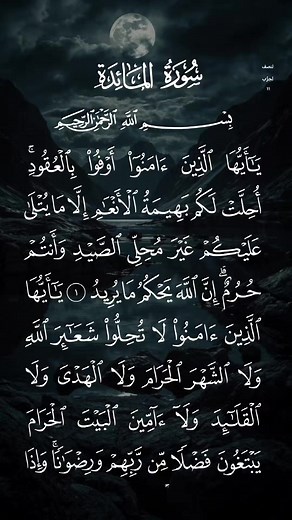 سُورَةُ المَائِدَةِ
نصف
الحزب
١١
بِسْمِ ٱللَّهِ ٱلرَّحْمَٰنِ ٱلرَّحِيمِ
يَـٰٓأَيُّهَا ٱلَّذِينَ ءَامَنُوٓا۟ أَوْفُوا۟ بِٱلْعُقُودِ ۚ
أُحِلَّتْ لَكُم بَهِيمَةُ ٱلْأَنْعَـٰمِ إِلَّا مَا يُتْلَىٰ
عَلَيْكُمْ غَيْرَ مُحِلِّى ٱلصَّيْدِ وَأَنتُمْ
حُرُمٌ ۗ إِنَّ ٱللَّهَ يَحْكُمُ مَا يُرِيدُ ١ يَـٰٓأَيُّهَا
ٱلَّذِينَ ءَامَنُوا۟ لَا تُحِلُّوا۟ شَعَـٰٓئِرَ ٱللَّهِ
وَلَا ٱلشَّهْرَ ٱلْحَرَامَ وَلَا ٱلْهَدْىَ وَلَا
ٱلْقَلَـٰٓئِدَ وَلَآ ءَآمِّينَ ٱلْبَيْتَ ٱلْحَرَامَ
يَبْتَغُونَ فَضْلًا مِّن رَّبِّهِمْ وَرِضْوَٰنًا ۚ وَإِذَا